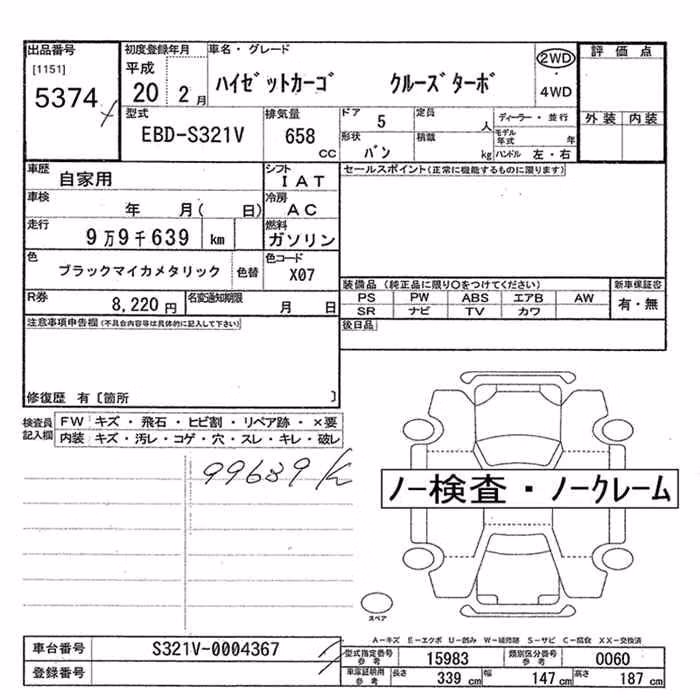 出品番号 初度登録年月 車名・グレード 評価点
[1151] 平成 2WD
5374 20 2月 ハイゼットカーゴ クルーズターボ ・ 4WD
型式 排気量 ドア 5 定員 人 ディーラー・並行 外装 内装
EBD-S321V 658 cc 形状 バン 積載 kg モデル年式 年
ハンドル 左・右
車歴 自家用 シフト IAT セールスポイント(正常に機能するものに限ります)
車検 年 月( 日) 冷房 AC
走行 9万9千639 km 燃料 ガソリン
色 ブラックマイカメタリック 色替 色コード X07
装備品 (純正品に限り○をつけてください) 新車保証書
R券 8,220円 名変通知期限 月 日 PS PW ABS エアB AW 有・無
SR ナビ TV カワ
注意事項申告欄(不具合内容等は具体的に記入して下さい) 後日品
修復歴 有〔箇所 〕
検査員記入欄 FW キズ・飛石・ヒビ割・リペア跡・×要
内装 キズ・汚レ・コゲ・穴・スレ・キレ・破レ
99639K
ノー検査・ノークレーム
スペア
A-キズ E-エクボ U-凹み W-補修跡 S-サビ C-腐食 XX-交換済
車台番号 S321V-0004367 型式指定番号 参考 15983 類別区分番号 参考 0060
登録番号 車庫証明用 参考 長さ 339cm 幅 147cm 高さ 187cm